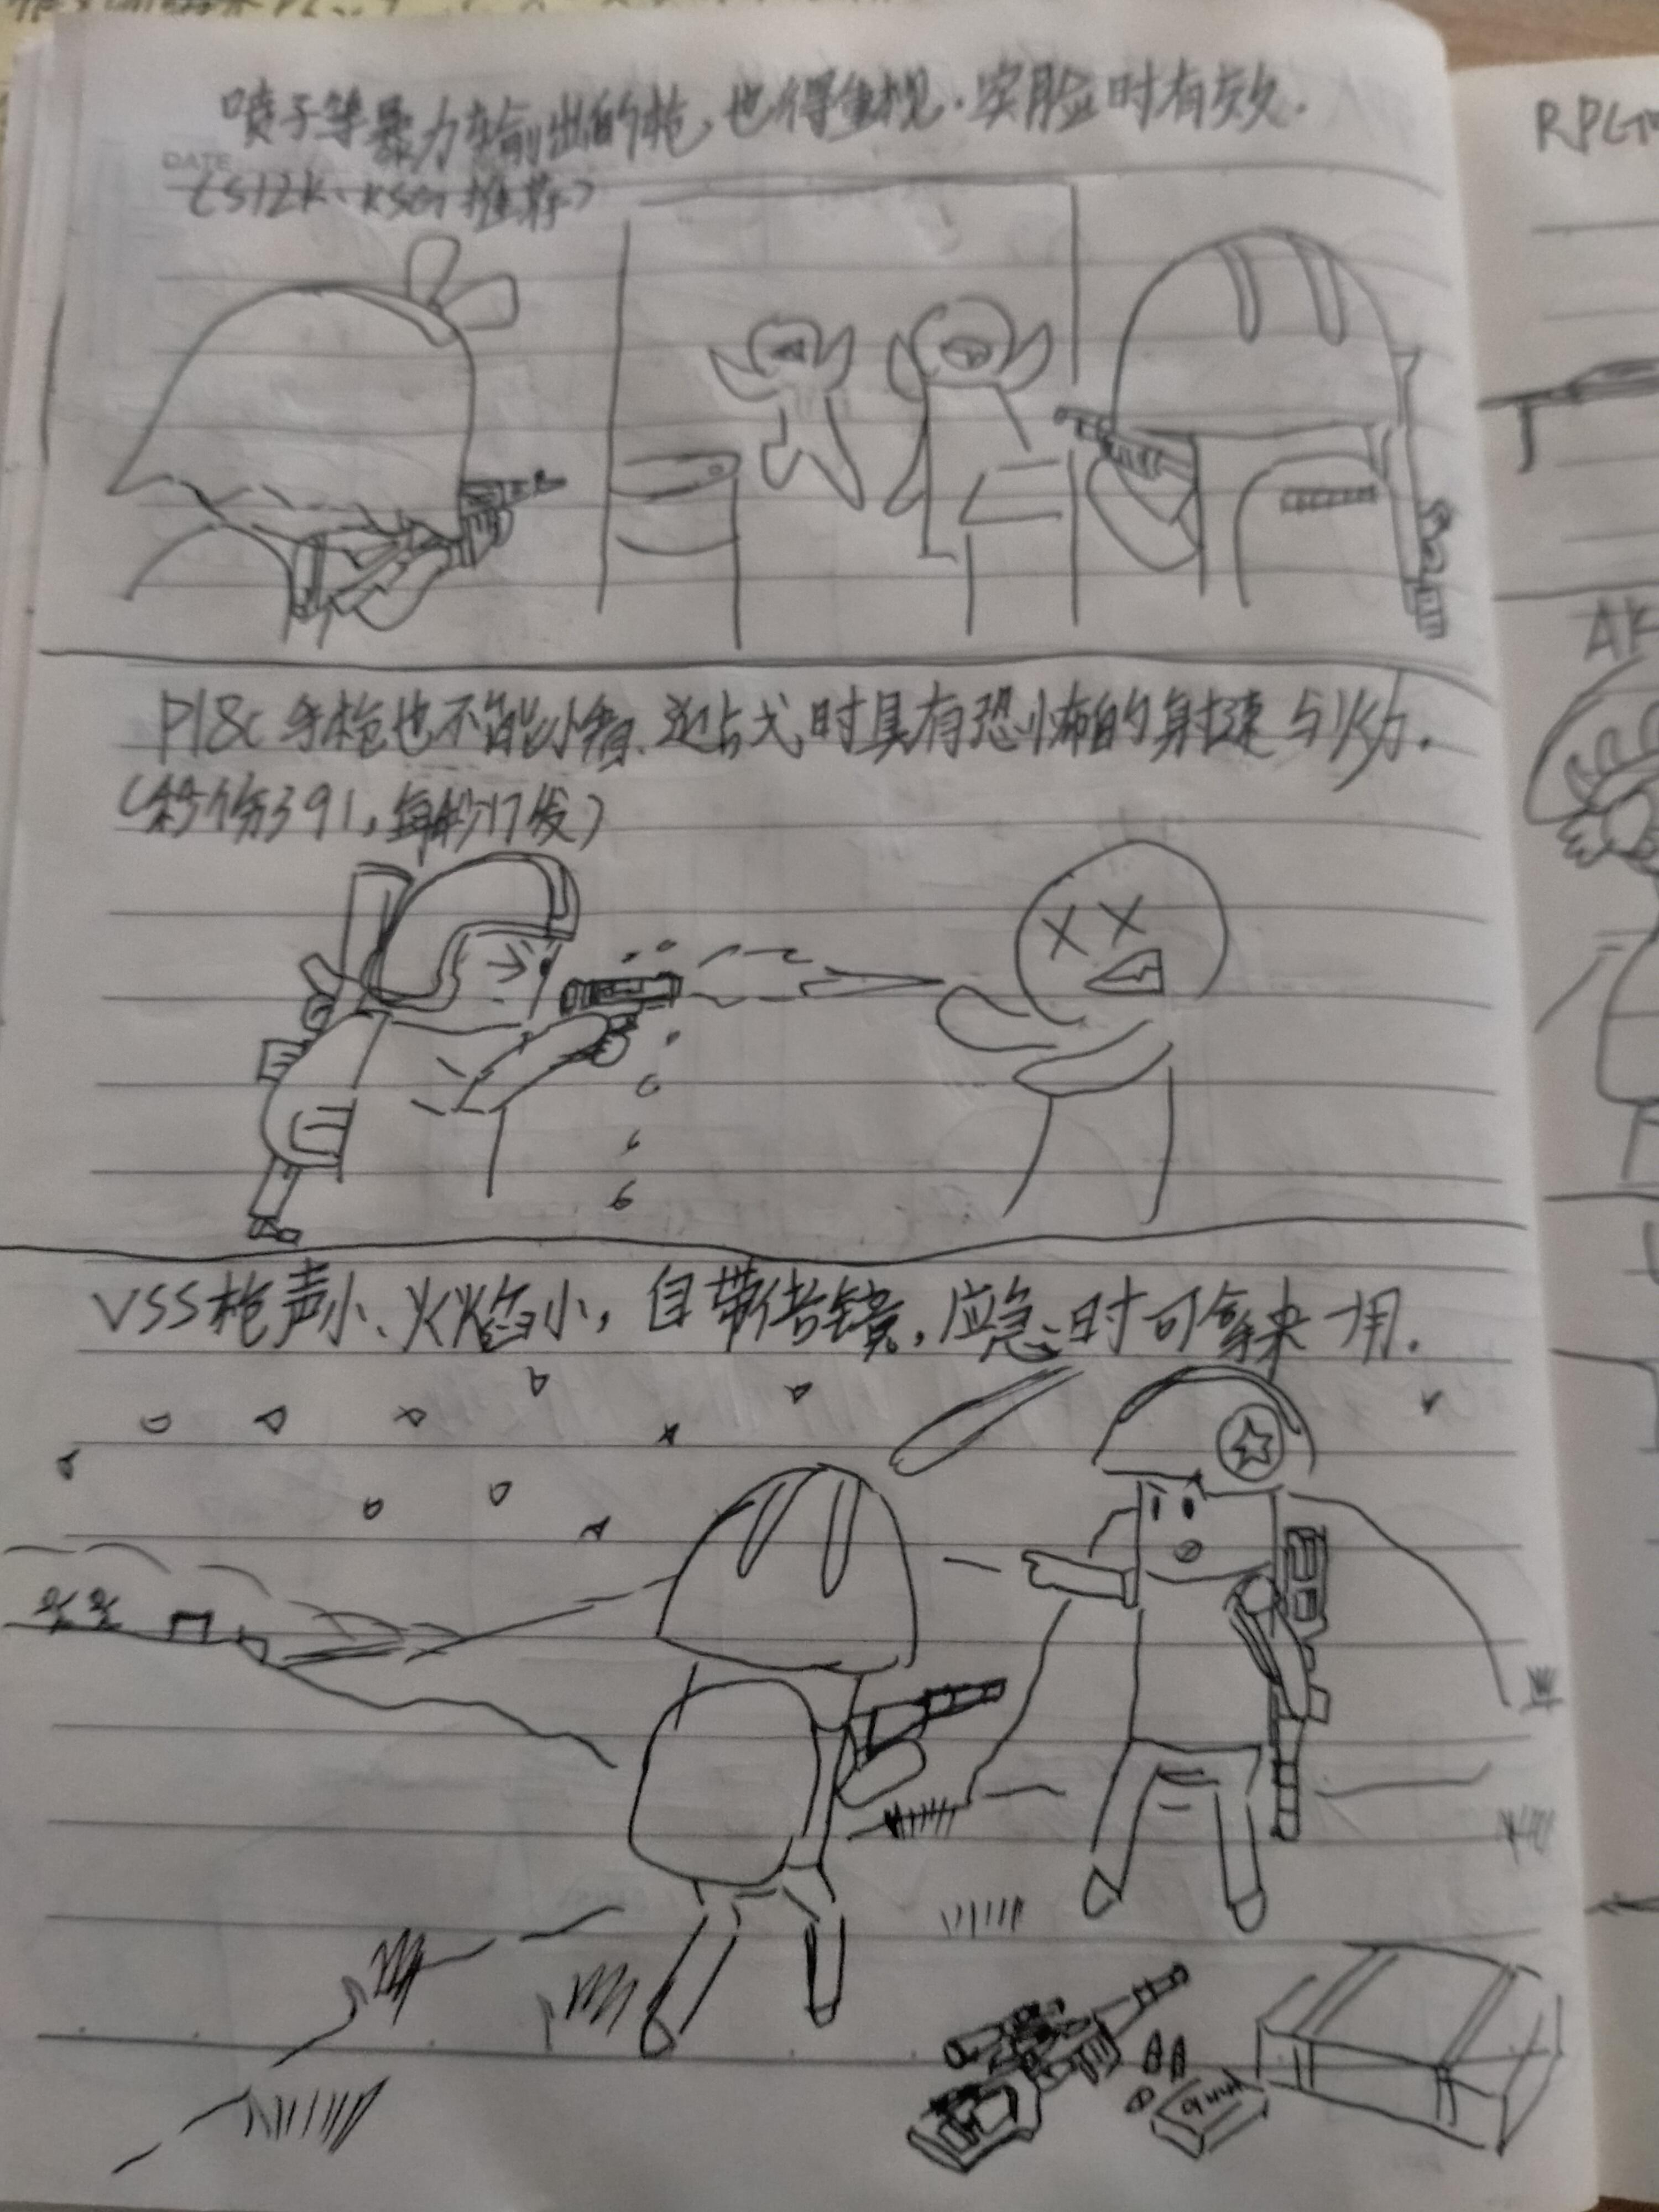 喷子等暴力输出的枪，也得重视．突脸时有效．
DATE
（S12K、KSG推荐）
P18C手枪也不能小看．近占戈时具有恐怖的射速与火力．
（秒伤391，每秒17发）
VSS枪声小、火焰小，自带倍镜，应急时可拿来一用．
9mm
RPG
AK